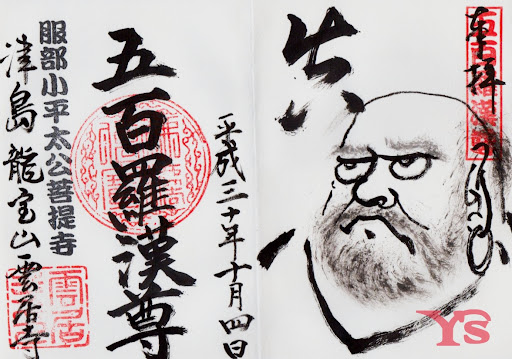 奉拝
喝
平成三十年十月四日
五百羅漢尊
服部小平太公菩提寺
津島龍宝山雲居寺
雲居寺
YS